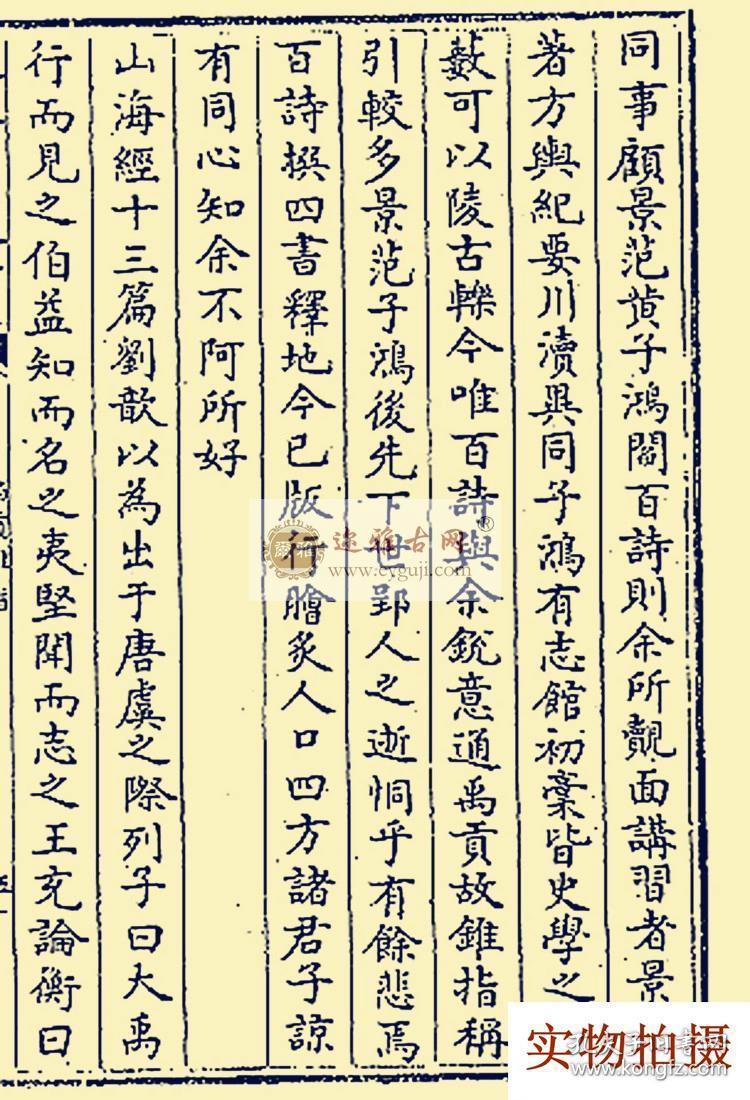 同事顧景范黄子鴻閻百詩則余所覿面講習者景
著方輿紀要川瀆異同子鴻有志館初稾皆史學之
藪可以陵古轢今唯百詩與余銳意通禹貢故錐指稱
引較多景范子鴻後先下世郢人之逝恫乎有餘悲焉
百詩撰四書釋地今已版行膾炙人口四方諸君子諒
有同心知余不阿所好
山海經十三篇劉歆以為出于唐虞之際列子曰大禹
行而見之伯益知而名之夷堅聞而志之王充論衡曰
迩雅古网®
www.eyguji.com
实物拍摄
www.kongfz.com